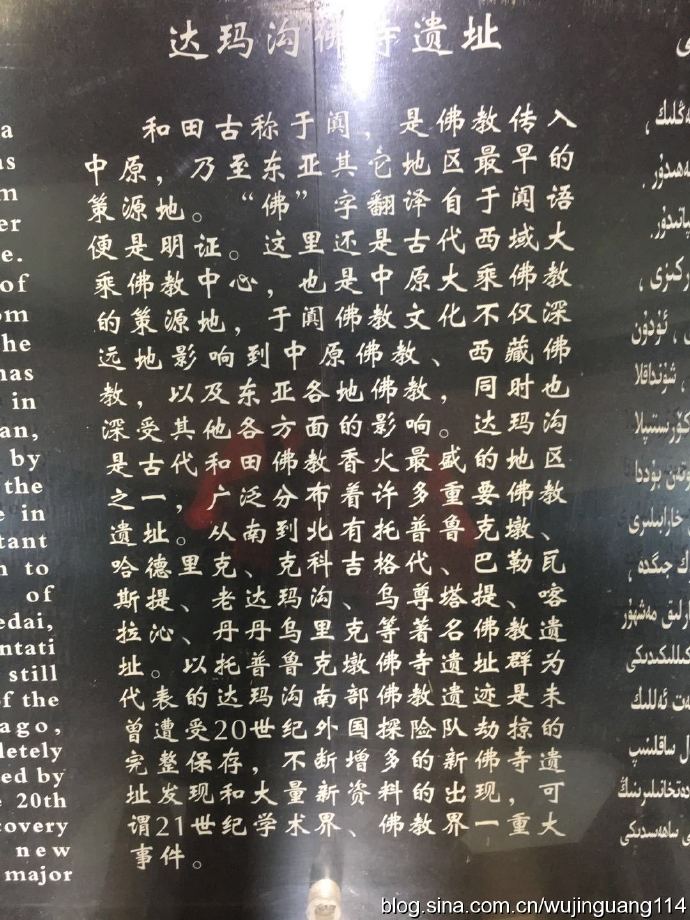 达玛沟佛寺遗址
和田古称于阗，是佛教传入
中原，乃至东亚其它地区最早的
策源地。“佛”字翻译自于阗语
便是明证。这里还是古代西域大
乘佛教中心，也是中原大乘佛教
的策源地，于阗佛教文化不仅深
远地影响到中原佛教、西藏佛
教，以及东亚各地佛教，同时也
深受其他各方面的影响。达玛沟
是古代和田佛教香火最盛的地区
之一，广泛分布着许多重要佛教
遗址。从南到北有托普鲁克墩、
哈德里克、克科吉格代、巴勒瓦
斯提、老达玛沟、乌尊塔提、喀
拉沁、丹丹乌里克等著名佛教遗
址。以托普鲁克墩佛寺遗址群为
代表的达玛沟南部佛教遗迹是未
曾遭受20世纪外国探险队劫掠的
完整保存，不断增多的新佛寺遗
址发现和大量新资料的出现，可
谓21世纪学术界、佛教界一重大
事件。
of
om
he
has
in
an,
by
the
in
tant
to
of
edai,
ntati
still
of the
ago,
letely
ed by
20th
covery
new
major
blog.sina.com.cn/wujinguang114